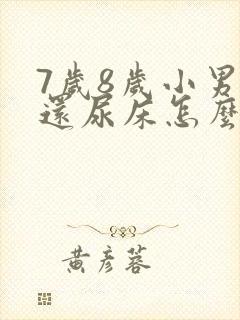 7歲8歲小男
還尿床怎麼
黃彥蓉